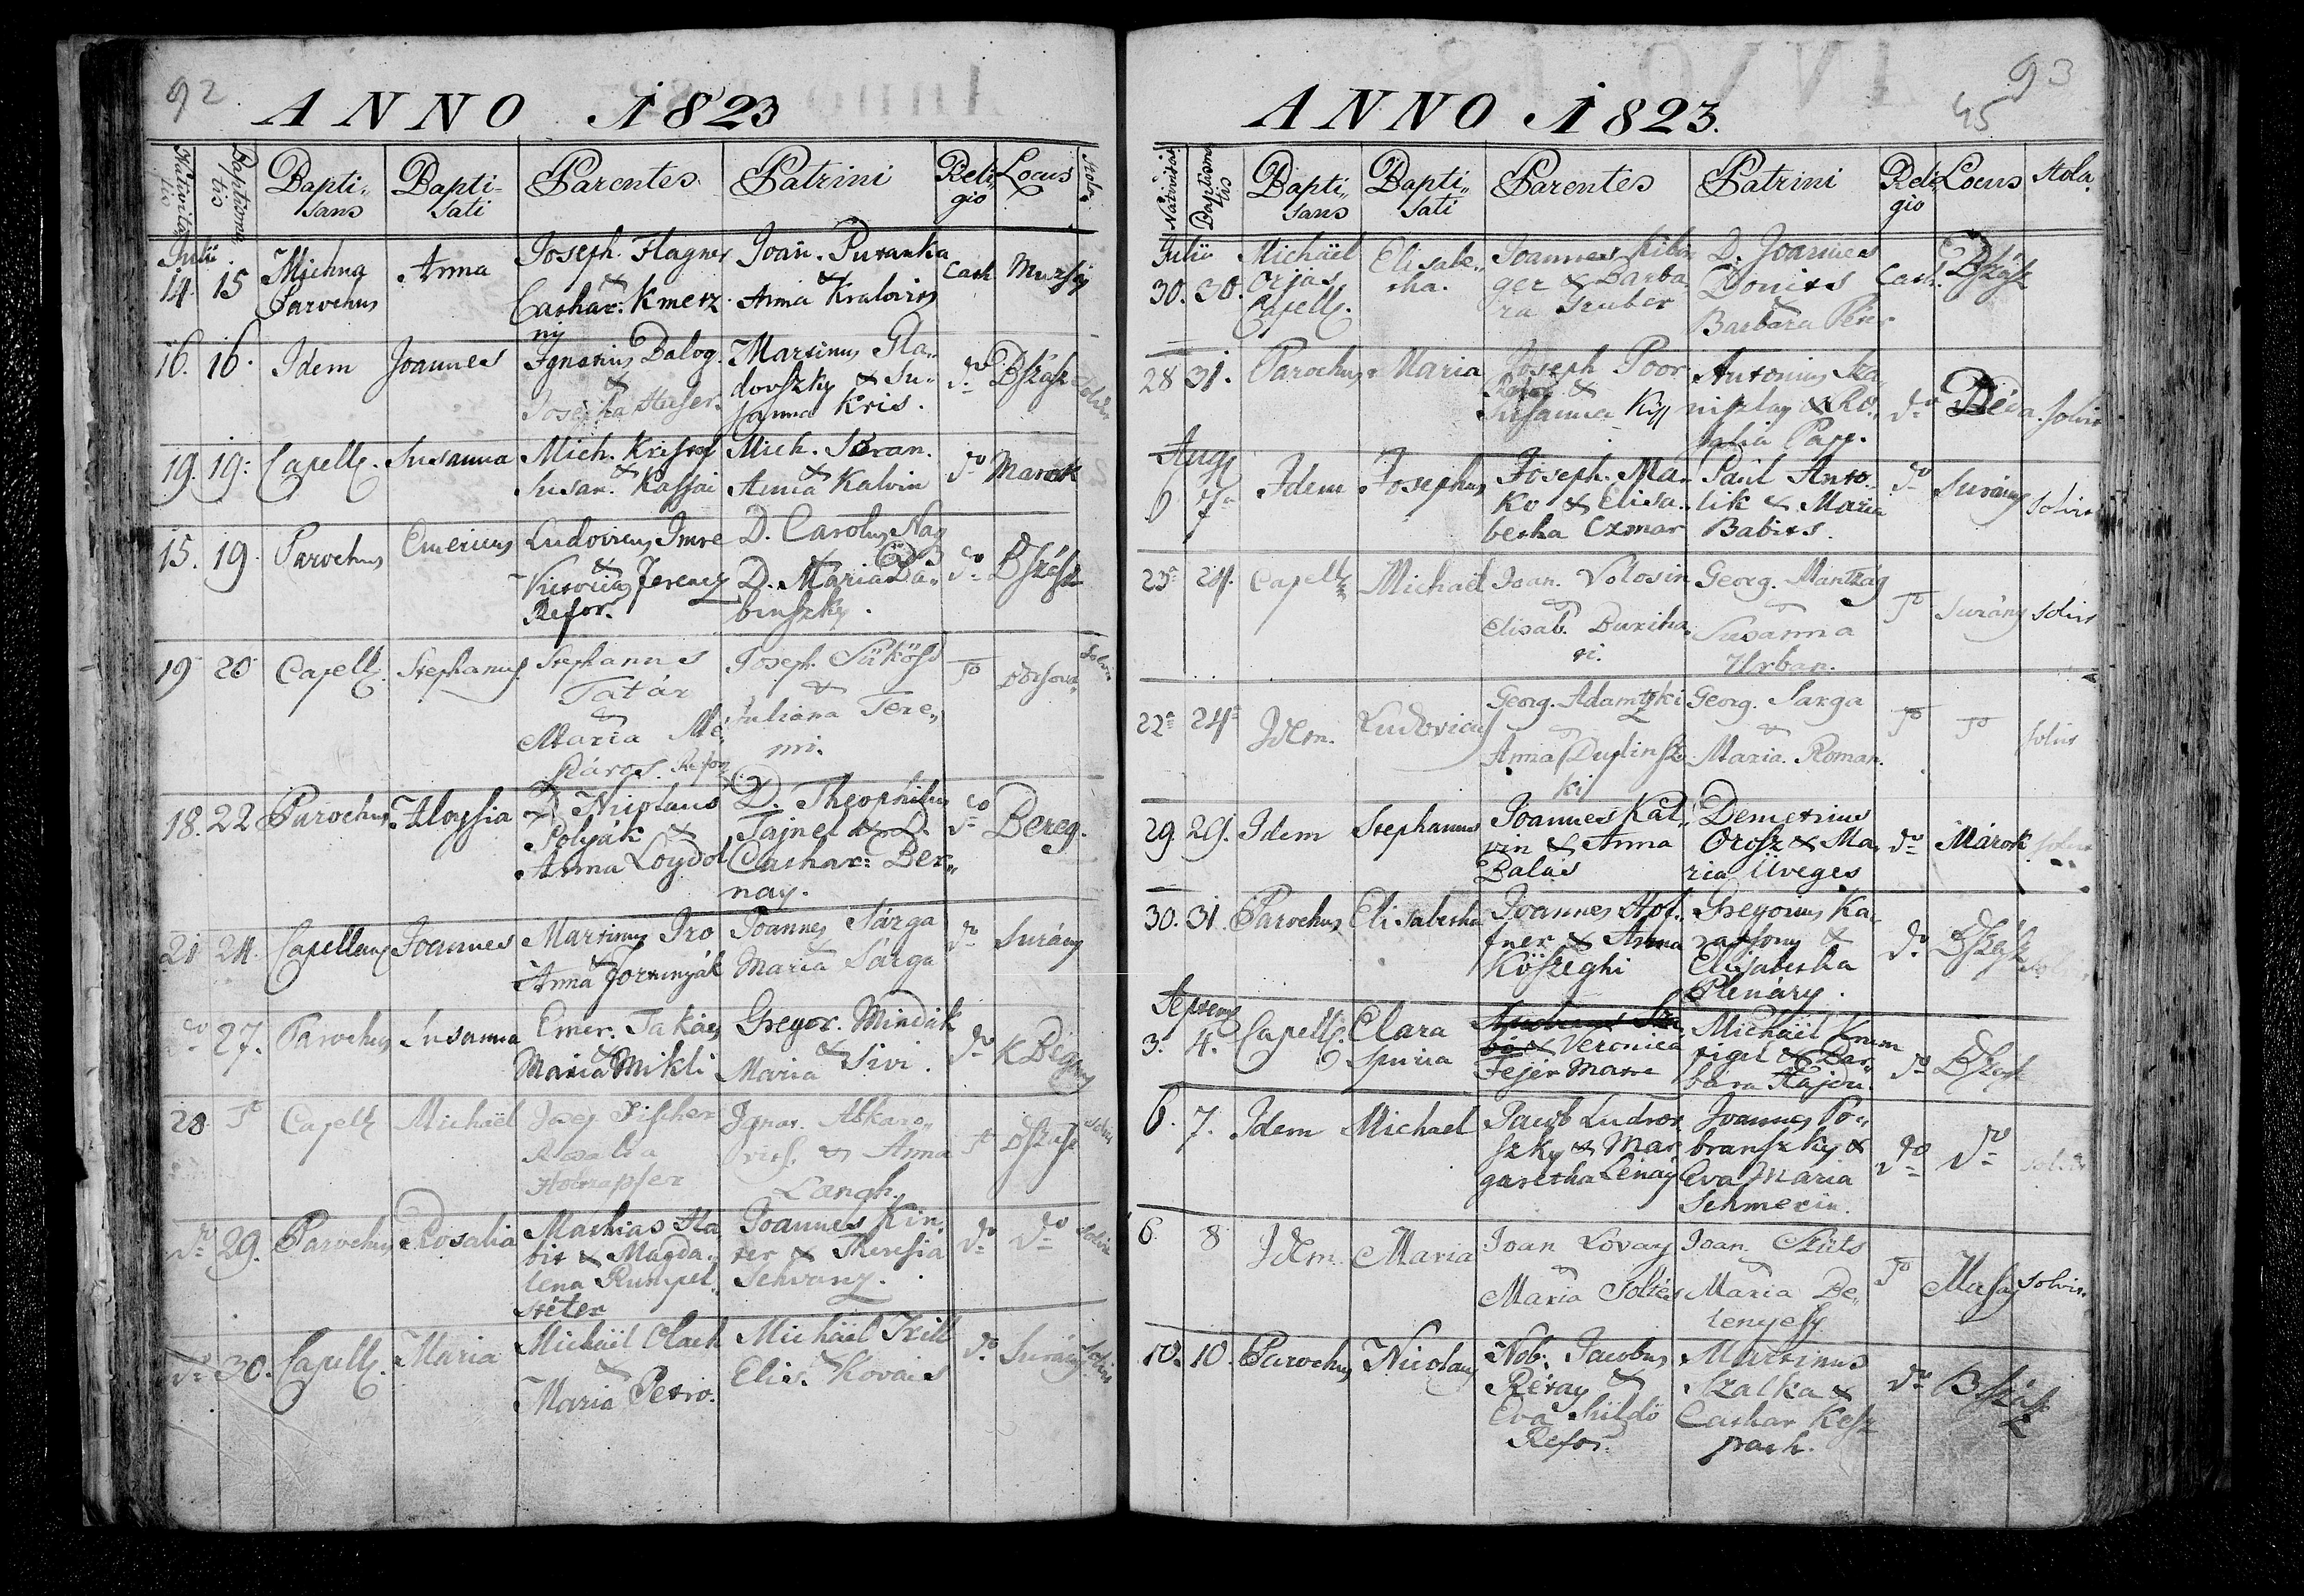 92
ANNO 1823
Nativitatis
Baptismatis
Bapti-
sans
Bapti-
sati
Parentes
Patrini
Reli-
gio
Locus
Stola
Julii
14. 15 Michna
Parochus
Anna
Joseph. Hagner
&
Cathar. Kmetz
Joan. Puranka
&
Anna Kralovits
Cath
16. 16. Idem Joannes
Ignatius Balog.
&
Martinus Gla-
dovszky & Su-
sanna Kris.
do Bszász
19. 19. Capell. Susanna
Mich. Kristof
&
Susan. Kassai
Mich. Soran.
&
Anna Kalvin
do Marok
15. 19. Parochus Emericus
Ludovicus Imre
&
Ferencz
Refor.
D. Carolus Nag
&
D. Maria Ba-
binszky.
do Bszász
19 20 Capell. Stephanus
Stephannes
Tatár
&
Maria Me-
száros. Refor
Joseph Sükösd
&
Juliana Tere-
mi.
do
18. 22 Parochus Aloysia
D. Nicolaus
Polyák &
Anna Loydol
D. Theophilus
Tajnel & D.
Cathar: Ber-
nay.
do Bereg.
21 24. Capellanus Joannes
Martinus Iro
&
Anna
Joannes Sárga
Maria Sárga
do Surány
do 27. Parochus Susanna
Emer. Takács
&
Maria Mikli
Gregor. Mindák
&
Maria Sivi.
do K Begány
28. do Capell Michaël
Josep Fischer
Rosalia
Ignat.
& Anna
Langh.
do Bszász
do 29. Parochus Rosalia
Mathias Ha-
bit & Magda-
lena Rumpel-
stéter
Joannes Kin-
ter & Theresia
Schvarz.
do do solvit
do 30. Capell. Maria
Michaël Olach
&
Maria Petro.
Michäel Trill
&
Elis. Kovats
do Surány solvit
93
45
ANNO 1823.
Nativitas
Baptisma
tis
Bapti-
sans
Bapti-
sati
Parentes
Patrini
Reli-
gio
Locus
Stola
Julii
30. 30. Michäel
Orjás
Capell.
Elisabe-
tha.
Joannes Kibin
ger & Barba
ra Gruber
D. Joannes
Donits
&
Barbara
Cath. Bszász
28 31. Parochus Maria
Joseph Poor
Refor &
Susanna Kis
Antonius Sza-
niszlay & Ro-
salia Papp.
do Déda. solvit
Aug
6 7a Idem Josephus
Joseph. Ma-
ko & Elisa-
betha Czmar
Paul Anto-
lik & Maria
Babits.
do Surány solvit
23a 24. Capell Michaël
Joan. Volosin
&
Elisab. Buxiha
ri.
Georg.
&
Susanna
Urban.
do Surány solvit
22a 24a Idem. Ludovicus
Georg. Adamtzki
&
Anna Duplinsz-
ki
Georg. Sarga
&
Maria Roman.
do do solvit
29. 29. Idem Stephanus
Joannes Kal-
vin & Anna
Balás
Demetrius
Orosz & Ma-
ria Üveges
do Márok solvit
30. 31. Parochus Elisabetha
Joannes Hof-
fner & Anna
Köszeghi
Gregorius Ka-
ratsony &
Elisabetha
Plenáry.
do Bszász
Septemb
3. 4. Capell. Clara
spuria
& Veronica
Fejer Marre
Michäel Krum
pigel & Bar-
bara Hajdu.
do Bszász
6. 7. Idem Michael
Jacob Ludvov
szky & Mar
garetha Lenay
Joannes Po-
branszky &
Eva Maria
Schmerin.
do do solvit
6 8 Idem. Maria
Joan Lovay
&
Maria Soltés
Joan. Szüts
&
Maria De-
tenyesy
do solvit.
10. 10. Parochus Nicolaus
Nob: Jacobus
Révay &
Eva Süldö
Refor.
Martinus
Szalka &
Cathar Kesz
trach.
do B szász